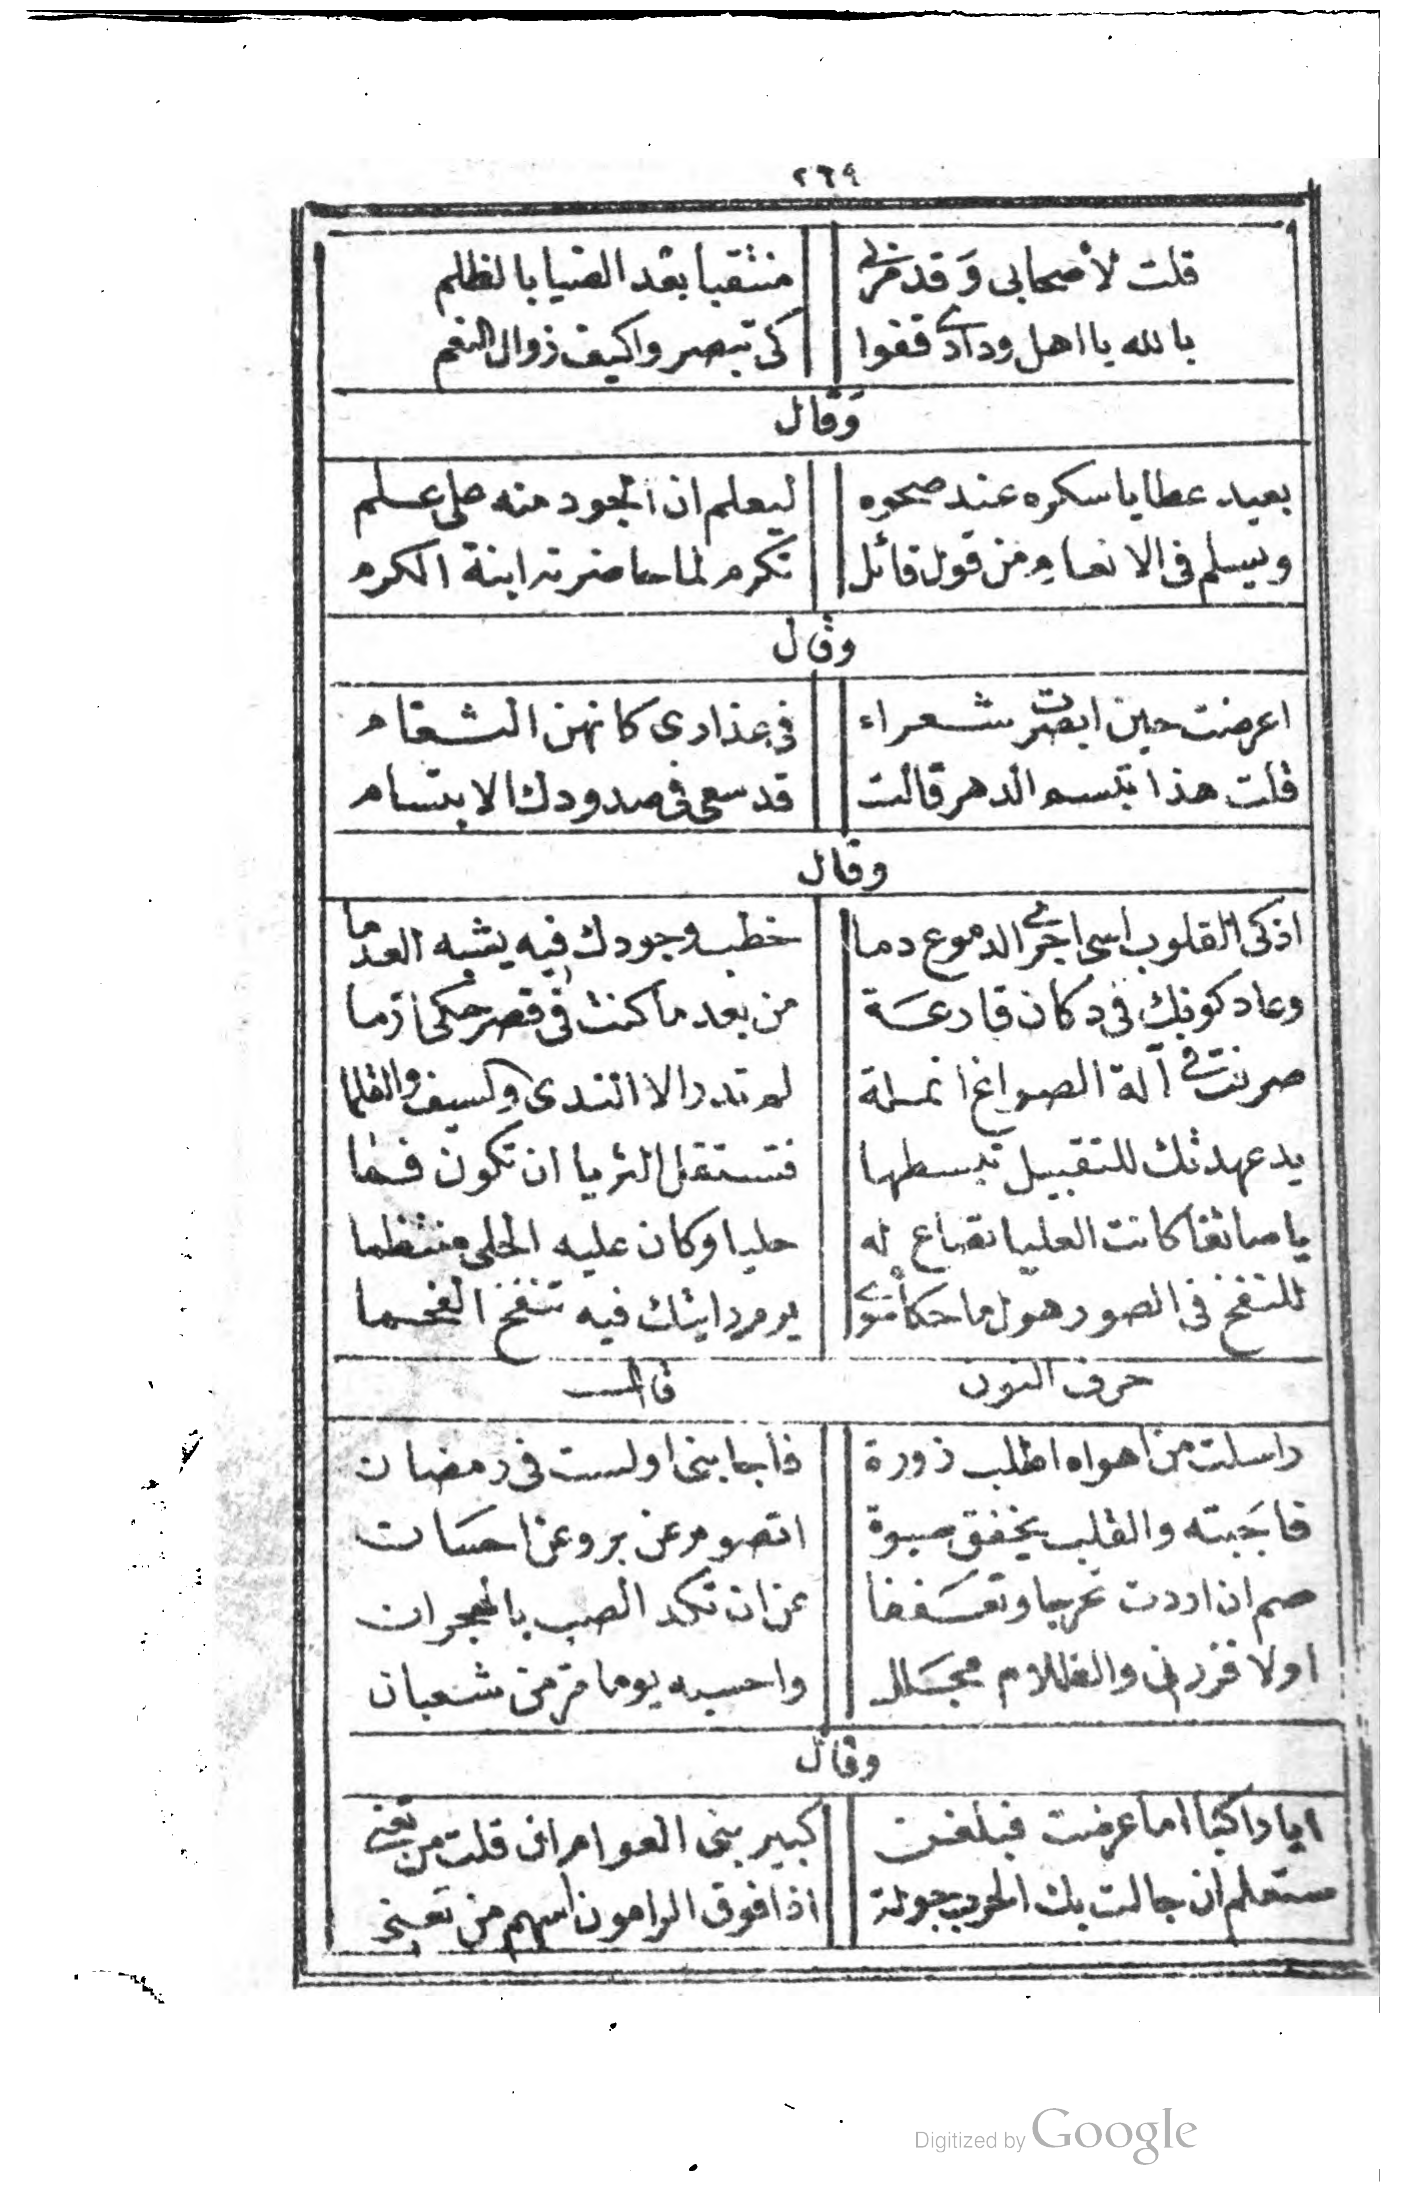 ٢٦٩
قلت لأصحابى وَقد مر بى منتقبا بعد الضيا بالظلم
بالله يا اهل ودادى قفوا كى تبصروا كيف زوال النعم
وَقال
يعيد عطايا سكره عند صحوه ليعلم ان الجود منه على علم
ويسلم فى الانعام من قول قائل تكرم لما خامرته ابنة الكرم
وقال
اعرضت حين ابصرت شعراء فى عذارى كانهن الثغام
قلت هذا تبسم الدهر قالت قد سعى فى صدودك الابتسام
وقال
اذكى القلوب اسى اجرى الدموع دما خطب وجودك فيه يشبه العدما
وعاد كونك فى دكان قارعة من بعد ما كنت فى قصر حكى ارما
صرفت فى آلة الصواغ انملة لم تدر الا الندى والسيف والقلما
يد عهدتك للتقبيل تبسطها فتستقل الثريا ان تكون فما
يا صائغا كانت العليا تصاغ له حليا وكان عليه الحلى منتظما
للنفخ فى الصور هول ما حكاه سوى يوم رايتك فيه تنفخ الفحما
حرف النون قال
راسلت من اهواه اطلب زورة فأجابنى اولست فى رمضان
فاجَبته والقلب يخفق صبوة اتصوم عن بر وعن احسَان
صم ان اردت تحرجا وتعَففا عن ان تكد الصب بالهجران
اولا فزرنى والظلام مجَلل واحسبه يوما مر من شعبان
وقال
ايا راكبا اما عرضت فبلغن كبير بنى العوام ان قلت من تعنى
ستعلم ان جالت بك الحرب جولة اذا فوق الرامون اسهم من تعنى
Digitized by Google